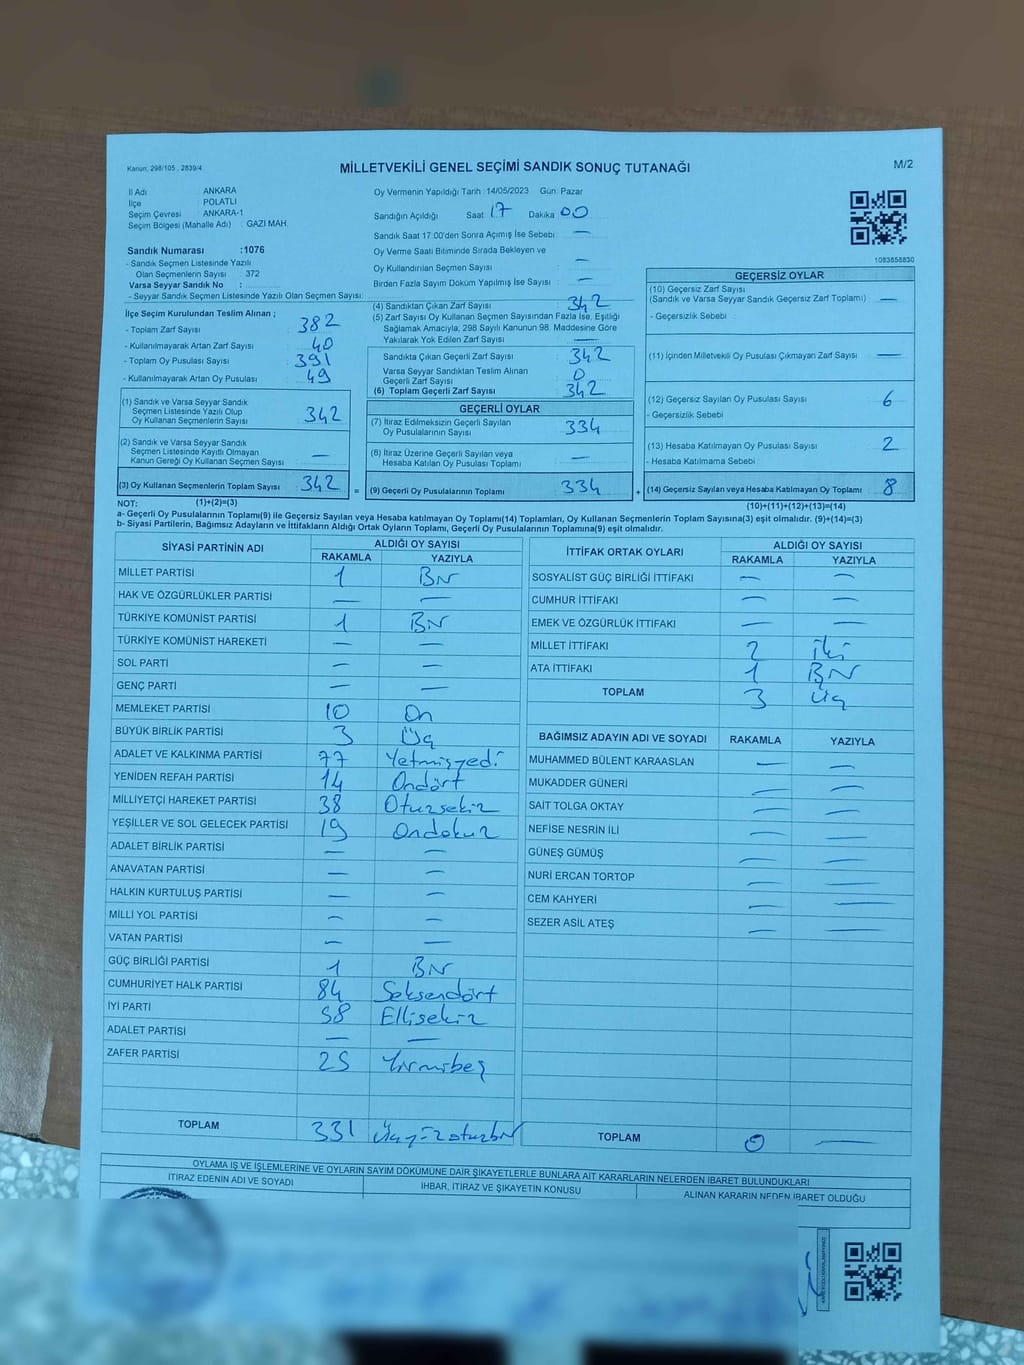 Kanun: 298/105 , 2839/4
MİLLETVEKİLİ GENEL SEÇİMİ SANDIK SONUÇ TUTANAĞI
M/2
İl Adı : ANKARA
İlçe : POLATLI
Seçim Çevresi : ANKARA-1
Seçim Bölgesi (Mahalle Adı) : GAZİ MAH.
Oy Vermenin Yapıldığı Tarih : 14/05/2023 Gün: Pazar
Sandığın Açıldığı Saat 17 Dakika 00
Sandık Saat 17:00'den Sonra Açımış İse Sebebi : —
Oy Verme Saati Bitiminde Sırada Bekleyen ve
Oy Kullandırılan Seçmen Sayısı : —
Birden Fazla Sayım Döküm Yapılmış İse Sayısı : —
1083658830
Sandık Numarası :1076
- Sandık Seçmen Listesinde Yazılı
Olan Seçmenlerin Sayısı : 372
Varsa Seyyar Sandık No :
- Seyyar Sandık Seçmen Listesinde Yazılı Olan Seçmen Sayısı:
İlçe Seçim Kurulundan Teslim Alınan ;
- Toplam Zarf Sayısı : 382
- Kullanılmayarak Artan Zarf Sayısı : 40
- Toplam Oy Pusulası Sayısı : 391
- Kullanılmayarak Artan Oy Pusulası : 49
(1) Sandık ve Varsa Seyyar Sandık
Seçmen Listesinde Yazılı Olup
Oy Kullanan Seçmenlerin Sayısı : 342
(2) Sandık ve Varsa Seyyar Sandık
Seçmen Listesinde Kayıtlı Olmayan
Kanun Gereği Oy Kullanan Seçmen Sayısı : —
(3) Oy Kullanan Seçmenlerin Toplam Sayısı : 342
(4) Sandıktan Çıkan Zarf Sayısı : 342
(5) Zarf Sayısı Oy Kullanan Seçmen Sayısından Fazla İse, Eşitliği
Sağlamak Amacıyla, 298 Sayılı Kanunun 98. Maddesine Göre
Yakılarak Yok Edilen Zarf Sayısı : —
Sandıkta Çıkan Geçerli Zarf Sayısı : 342
Varsa Seyyar Sandıktan Teslim Alınan
Geçerli Zarf Sayısı : 0
(6) Toplam Geçerli Zarf Sayısı : 342
GEÇERLİ OYLAR
(7) İtiraz Edilmeksizin Geçerli Sayılan
Oy Pusulalarının Sayısı : 334
(8) İtiraz Üzerine Geçerli Sayılan veya
Hesaba Katılan Oy Pusulası Toplamı : —
= (9) Geçerli Oy Pusulalarının Toplamı : 334
GEÇERSİZ OYLAR
(10) Geçersiz Zarf Sayısı
(Sandık ve Varsa Seyyar Sandık Geçersiz Zarf Toplamı) : —
- Geçersizlik Sebebi :
(11) İçinden Milletvekili Oy Pusulası Çıkmayan Zarf Sayısı : —
(12) Geçersiz Sayılan Oy Pusulası Sayısı : 6
- Geçersizlik Sebebi :
(13) Hesaba Katılmayan Oy Pusulası Sayısı : 2
- Hesaba Katılmama Sebebi :
+ (14) Geçersiz Sayılan veya Hesaba Katılmayan Oy Toplamı : 8
NOT: (1)+(2)=(3)
(10)+(11)+(12)+(13)=(14)
a- Geçerli Oy Pusulalarının Toplamı(9) ile Geçersiz Sayılan veya Hesaba katılmayan Oy Toplamı(14) Toplamları, Oy Kullanan Seçmenlerin Toplam Sayısına(3) eşit olmalıdır. (9)+(14)=(3)
b- Siyasi Partilerin, Bağımsız Adayların ve İttifakların Aldığı Ortak Oyların Toplamı, Geçerli Oy Pusulalarının Toplamına(9) eşit olmalıdır.
SİYASİ PARTİNİN ADI ALDIĞI OY SAYISI
RAKAMLA YAZIYLA
MİLLET PARTİSİ 1 Bir
HAK VE ÖZGÜRLÜKLER PARTİSİ — —
TÜRKİYE KOMÜNİST PARTİSİ 1 Bir
TÜRKİYE KOMÜNİST HAREKETİ — —
SOL PARTİ — —
GENÇ PARTİ — —
MEMLEKET PARTİSİ 10 On
BÜYÜK BİRLİK PARTİSİ 3 Üç
ADALET VE KALKINMA PARTİSİ 77 Yetmişyedi
YENİDEN REFAH PARTİSİ 14 Ondört
MİLLİYETÇİ HAREKET PARTİSİ 38 Otuzsekiz
YEŞİLLER VE SOL GELECEK PARTİSİ 19 Ondokuz
ADALET BİRLİK PARTİSİ — —
ANAVATAN PARTİSİ — —
HALKIN KURTULUŞ PARTİSİ — —
MİLLİ YOL PARTİSİ — —
VATAN PARTİSİ — —
GÜÇ BİRLİĞİ PARTİSİ 1 Bir
CUMHURİYET HALK PARTİSİ 84 Seksendört
İYİ PARTİ 58 Ellisekiz
ADALET PARTİSİ — —
ZAFER PARTİSİ 25 Yirmibeş
TOPLAM 331 Üçyüzotuzbir
İTTİFAK ORTAK OYLARI ALDIĞI OY SAYISI
RAKAMLA YAZIYLA
SOSYALİST GÜÇ BİRLİĞİ İTTİFAKI — —
CUMHUR İTTİFAKI — —
EMEK VE ÖZGÜRLÜK İTTİFAKI — —
MİLLET İTTİFAKI 2 iki
ATA İTTİFAKI 1 Bir
TOPLAM 3 Üç
BAĞIMSIZ ADAYIN ADI VE SOYADI RAKAMLA YAZIYLA
MUHAMMED BÜLENT KARAASLAN — —
MUKADDER GÜNERİ — —
SAİT TOLGA OKTAY — —
NEFİSE NESRİN İLİ — —
GÜNEŞ GÜMÜŞ — —
NURİ ERCAN TORTOP — —
CEM KAHYERİ — —
SEZER ASİL ATEŞ — —
TOPLAM 0 —
OYLAMA İŞ VE İŞLEMLERİNE VE OYLARIN SAYIM DÖKÜMÜNE DAİR ŞİKAYETLERLE BUNLARA AİT KARARLARIN NELERDEN İBARET BULUNDUKLARI
İTİRAZ EDENİN ADI VE SOYADI İHBAR, İTİRAZ VE ŞİKAYETİN KONUSU ALINAN KARARIN NEDEN İBARET OLDUĞU